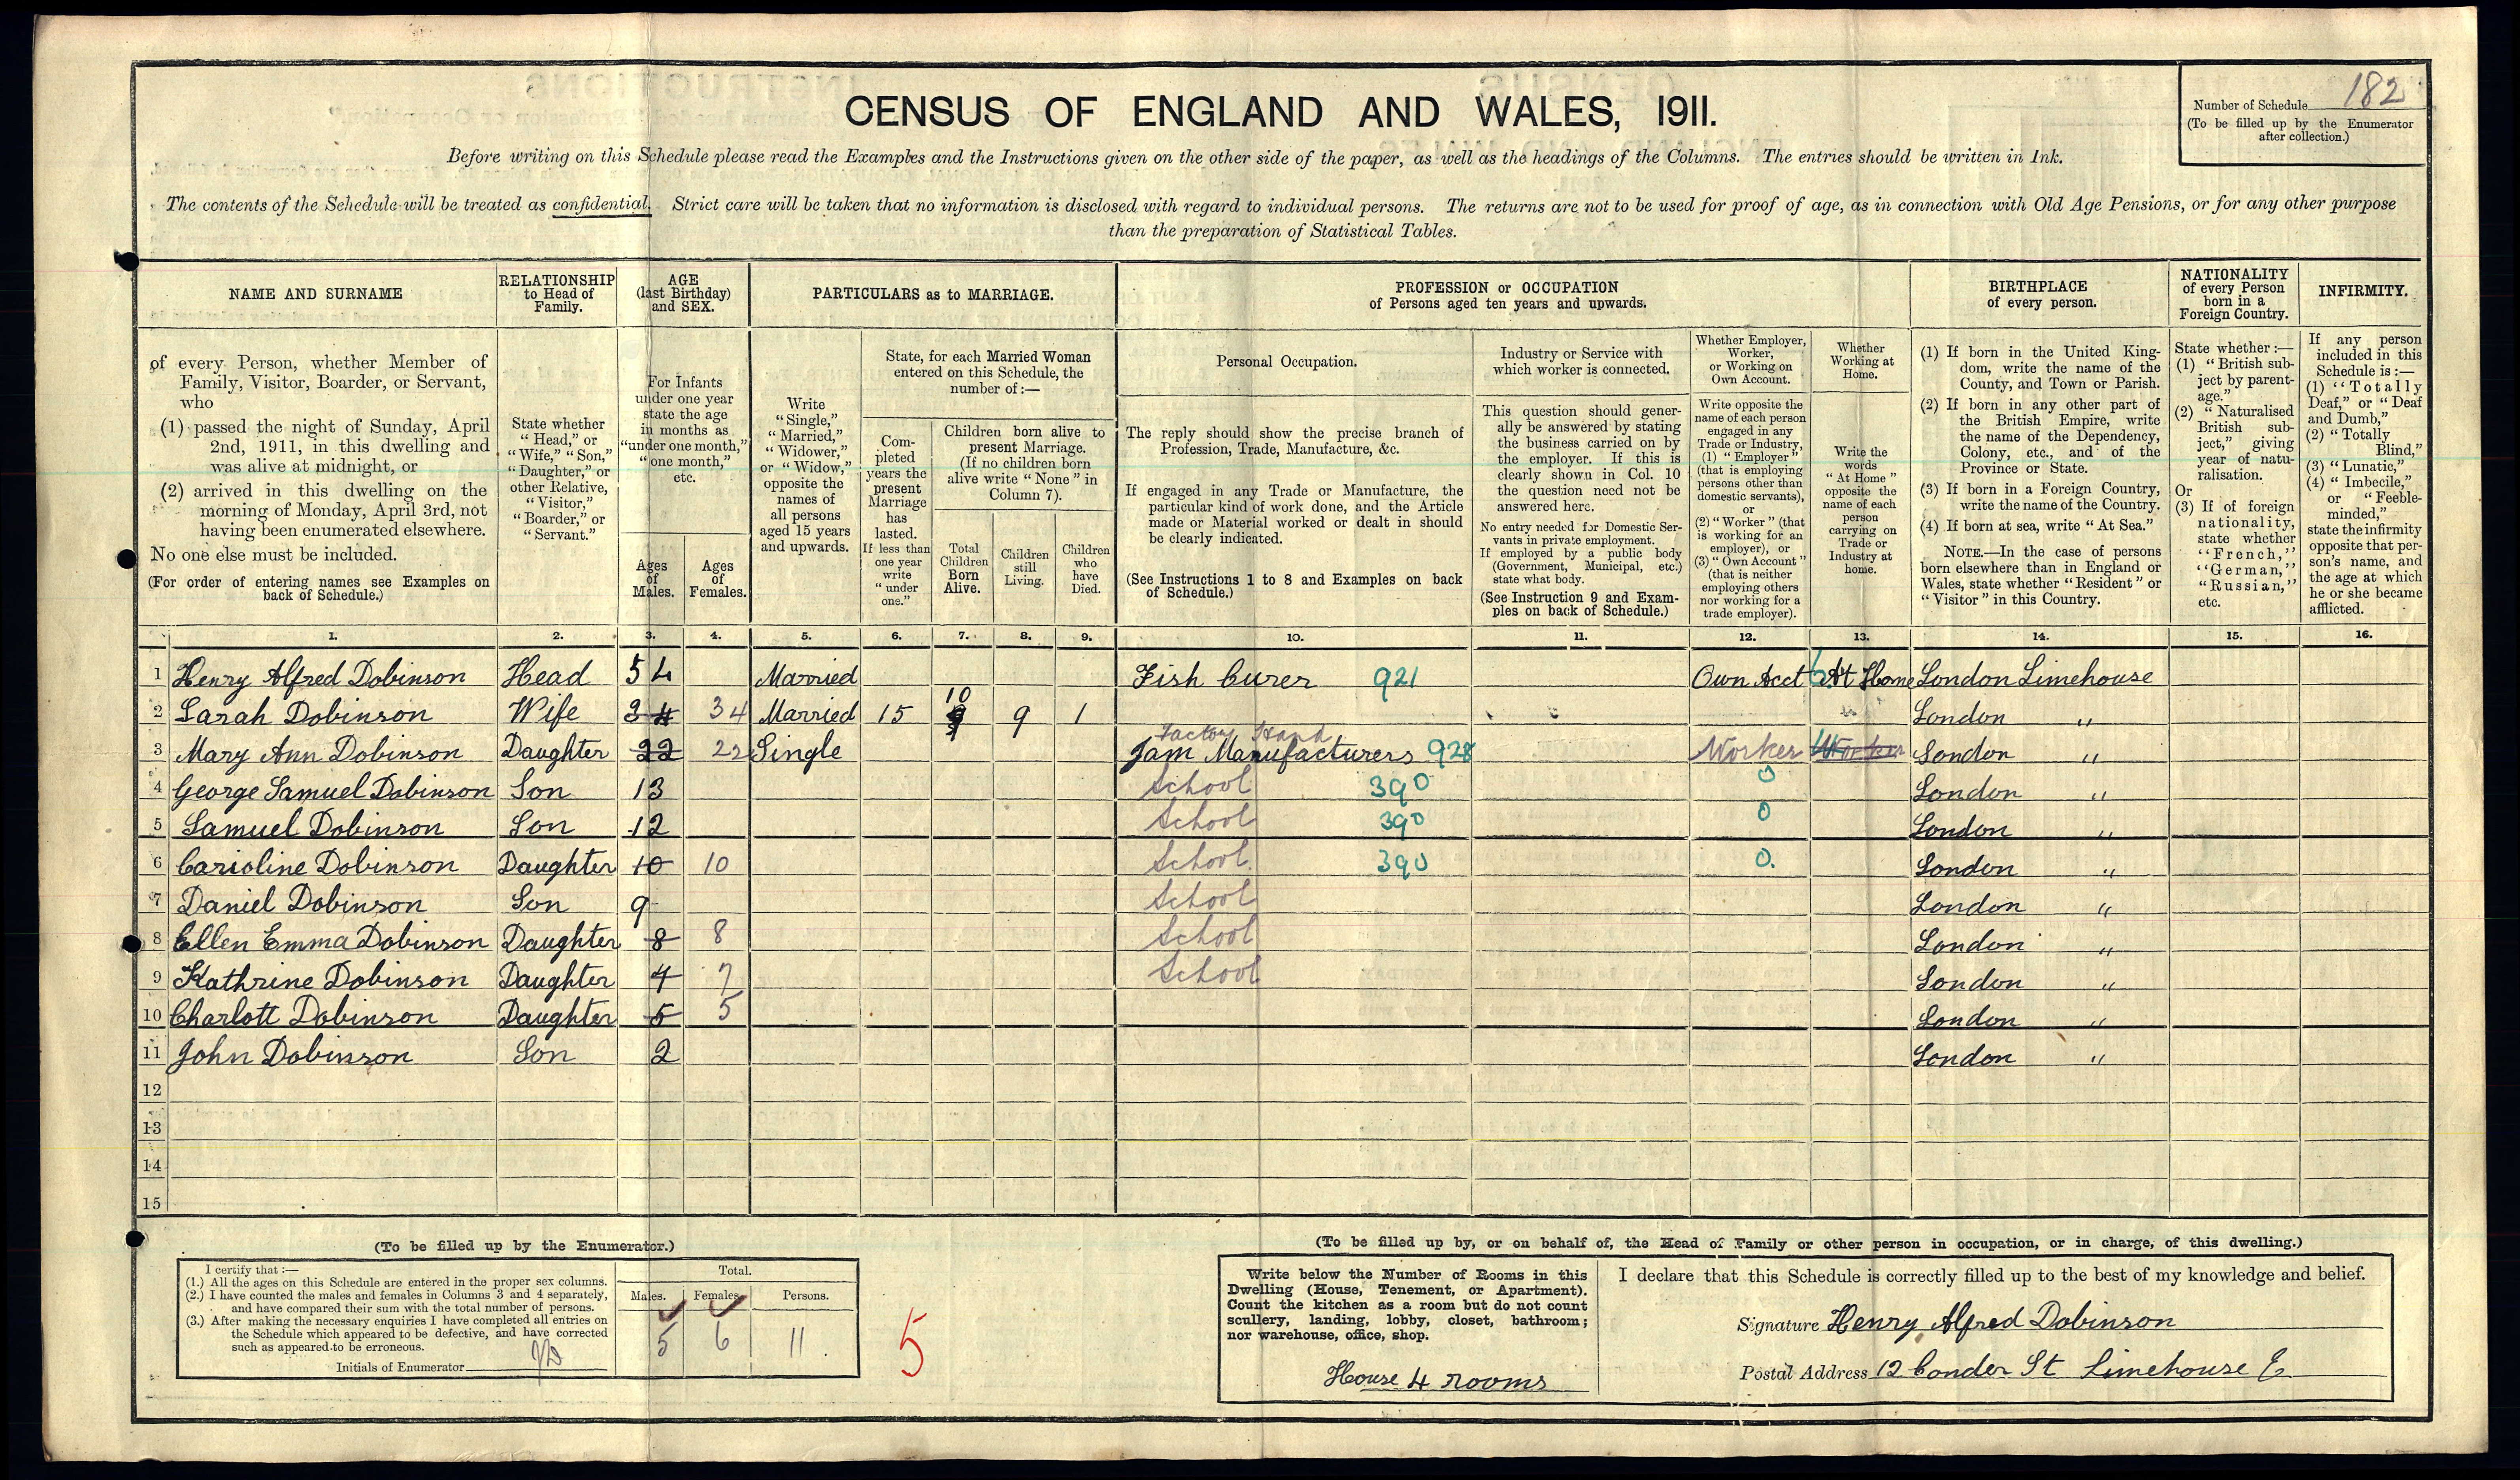 CENSUS OF ENGLAND AND WALES, 1911.
Number of Schedule 182
(To be filled up by the Enumerator
after collection.)
Before writing on this Schedule please read the Examples and the Instructions given on the other side of the paper, as well as the headings of the Columns. The entries should be written in Ink.
The contents of the Schedule will be treated as confidential. Strict care will be taken that no information is disclosed with regard to individual persons. The returns are not to be used for proof of age, as in connection with Old Age Pensions, or for any other purpose
than the preparation of Statistical Tables.
NAME AND SURNAME
of every Person, whether Member of
Family, Visitor, Boarder, or Servant,
who
(1) passed the night of Sunday, April
2nd, 1911, in this dwelling and
was alive at midnight, or
(2) arrived in this dwelling on the
morning of Monday, April 3rd, not
having been enumerated elsewhere.
No one else must be included.
(For order of entering names see Examples on
back of Schedule.)
RELATIONSHIP
to Head of
Family.
State whether
"Head," or
"Wife," "Son,"
"Daughter," or
other Relative,
"Visitor,"
"Boarder," or
"Servant."
AGE
(last Birthday)
and SEX.
For Infants
under one year
state the age
in months as
"under one month,"
"one month,"
etc.
Ages
of
Males.
Ages
of
Females.
PARTICULARS as to MARRIAGE.
Write
"Single,"
"Married,"
"Widower,"
or "Widow,"
opposite the
names of
all persons
aged 15 years
and upwards.
State, for each Married Woman
entered on this Schedule, the
number of:—
Com-
pleted
years the
present
Marriage
has
lasted.
If less than
one year
write
"under
one."
Children born alive to
present Marriage.
(If no children born
alive write "None" in
Column 7).
Total
Children
Born
Alive.
Children
still
Living.
Children
who
have
Died.
PROFESSION or OCCUPATION
of Persons aged ten years and upwards.
Personal Occupation.
The reply should show the precise branch of
Profession, Trade, Manufacture, &c.
If engaged in any Trade or Manufacture, the
particular kind of work done, and the Article
made or Material worked or dealt in should
be clearly indicated.
(See Instructions 1 to 8 and Examples on back
of Schedule.)
Industry or Service with
which worker is connected.
This question should gener-
ally be answered by stating
the business carried on by
the employer. If this is
clearly shown in Col. 10
the question need not be
answered here.
No entry needed for Domestic Ser-
vants in private employment.
If employed by a public body
(Government, Municipal, etc.)
state what body.
(See Instruction 9 and Exam-
ples on back of Schedule.)
Whether Employer,
Worker,
or Working on
Own Account.
Write opposite the
name of each person
engaged in any
Trade or Industry,
(1) "Employer"
(that is employing
persons other than
domestic servants),
or
(2) "Worker" (that
is working for an
employer), or
(3) "Own Account"
(that is neither
employing others
nor working for a
trade employer).
Whether
Working at
Home.
Write the
words
"At Home"
opposite the
name of each
person
carrying on
Trade or
Industry at
home.
BIRTHPLACE
of every person.
(1) If born in the United King-
dom, write the name of the
County, and Town or Parish.
(2) If born in any other part of
the British Empire, write
the name of the Dependency,
Colony, etc., and of the
Province or State.
(3) If born in a Foreign Country,
write the name of the Country.
(4) If born at sea, write "At Sea."
NOTE.—In the case of persons
born elsewhere than in England or
Wales, state whether "Resident" or
"Visitor" in this Country.
NATIONALITY
of every Person
born in a
Foreign Country.
State whether:—
(1) "British sub-
ject by parent-
age."
(2) "Naturalised
British sub-
ject," giving
year of natu-
ralisation.
Or
(3) If of foreign
nationality,
state whether
"French,"
"German,"
"Russian,"
etc.
INFIRMITY.
If any person
included in this
Schedule is:—
(1) "Totally
Deaf," or "Deaf
and Dumb,"
(2) "Totally
Blind,"
(3) "Lunatic,"
(4) "Imbecile,"
or "Feeble-
minded,"
state the infirmity
opposite that per-
son's name, and
the age at which
he or she became
afflicted.
1. 2. 3. 4. 5. 6. 7. 8. 9. 10. 11. 12. 13. 14. 15. 16.
1 Henry Alfred Dobinson Head 54 Married Fish Curer 921 Own Acct At Home London Limehouse
10
2 Sarah Dobinson Wife 34 34 Married 15 9 1 London "
Factory Hand
3 Mary Ann Dobinson Daughter 22 22 Single Jam Manufacturers 928 Worker Worker London "
4 George Samuel Dobinson Son 13 School 390 0 London "
5 Samuel Dobinson Son 12 School 390 0 London "
6 Carioline Dobinson Daughter 10 10 School 390 0. London "
7 Daniel Dobinson Son 9 School London "
8 Ellen Emma Dobinson Daughter 8 8 School London "
9 Kathrine Dobinson Daughter 7 7 School London "
10 Charlott Dobinson Daughter 5 5 London "
11 John Dobinson Son 2 London "
12
13
14
15
(To be filled up by the Enumerator.)
I certify that:—
(1.) All the ages on this Schedule are entered in the proper sex columns.
(2.) I have counted the males and females in Columns 3 and 4 separately,
and have compared their sum with the total number of persons.
(3.) After making the necessary enquiries I have completed all entries on
the Schedule which appeared to be defective, and have corrected
such as appeared to be erroneous.
Initials of Enumerator
Total.
Males. Females. Persons.
5 6 11
5
(To be filled up by, or on behalf of, the Head of Family or other person in occupation, or in charge, of this dwelling.)
Write below the Number of Rooms in this
Dwelling (House, Tenement, or Apartment).
Count the kitchen as a room but do not count
scullery, landing, lobby, closet, bathroom;
nor warehouse, office, shop.
House 4 rooms
I declare that this Schedule is correctly filled up to the best of my knowledge and belief.
Signature Henry Alfred Dobinson
Postal Address 12 Conder St Limehouse E